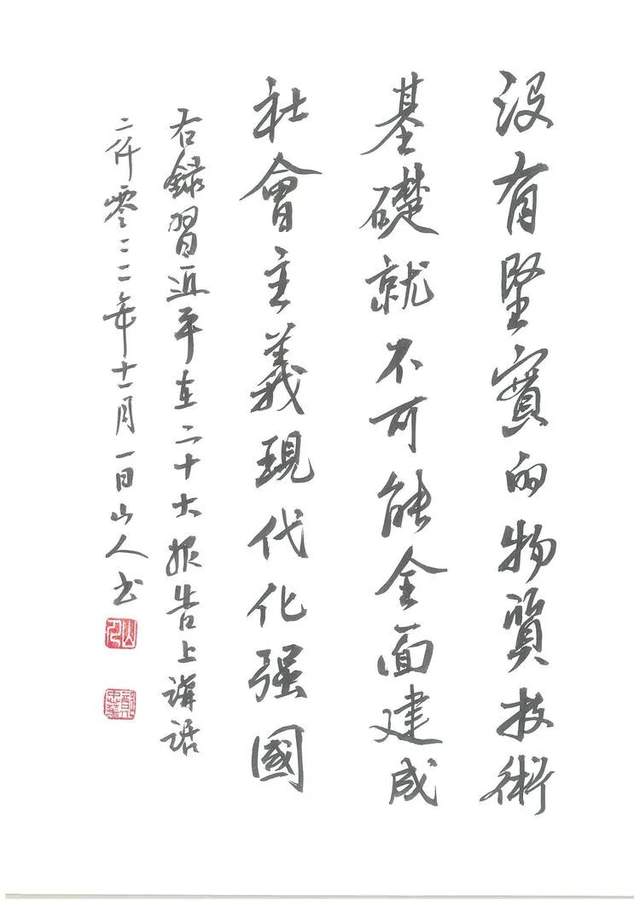 没有堅實的物質技術
基礎就不可能全面建成
社會主義現代化强國
右録習近平在二十大报告上講話
二仟零二二年十一月一日山人书